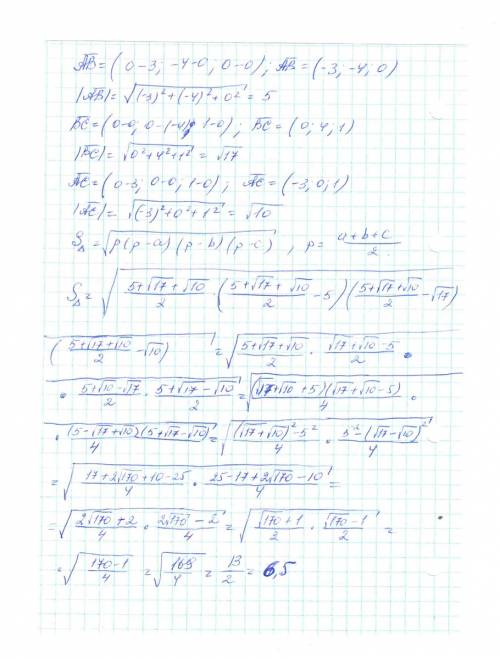 A̅B̅=(0-3; -4-0; 0-0); A̅B̅=(-3; -4; 0)
|A̅B̅|=√((-3)²+(-4)²+0²)=5
B̅C̅=(0-0; 0-(-4); 1-0); B̅C̅=(0; 4; 1)
|B̅C̅|=√(0²+4²+1²)=√17
A̅C̅=(0-3; 0-0; 1-0); A̅C̅=(-3; 0; 1)
|A̅C̅|=√((-3)²+0²+1²)=√10
S△=√(p(p-a)(p-b)(p-c)), p=(a+b+c)/2
S△=√((5+√17+√10)/2 · ((5+√17+√10)/2 -5)((5+√17+√10)/2 -√17)
((5+√17+√10)/2 -√10)) =√((5+√17+√10)/2 · (√17+√10-5)/2 ·
· (5+√10-√17)/2 · (5+√17-√10)/2)=√((√17+√10+5)(√17+√10-5)/4 ·
· (5-√17+√10)(5+√17-√10)/4)=√(((√17+√10)²-5²)/4 · (5²-(√17-√10)²)/4)
=√((17+2√170+10-25)/4 · (25-17+2√170-10)/4)=
=√((2√170+2)/4 · (2√170-2)/4)=√((√170+1)/2 · (√170-1)/2)=
=√((170-1)/4)=√(169/4)=13/2=6,5